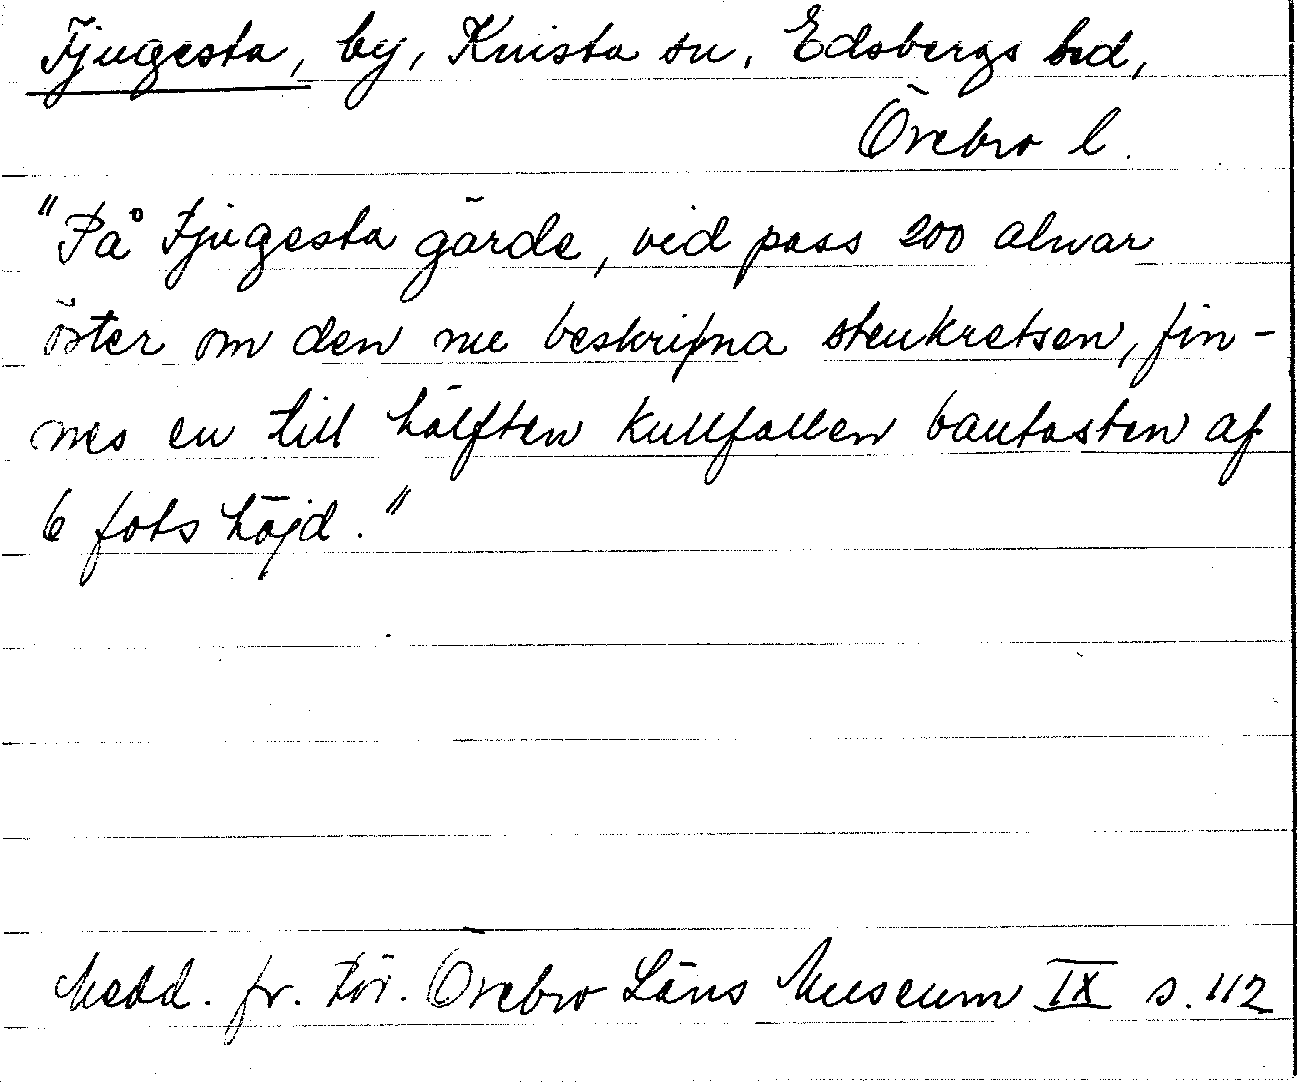 Fjugesta, by, Knista sn, Edsbergs hd,
Örebro l.
"På Fjugesta gärde, vid pass 200 alnar
öster om den nu beskrifna stenkretsen, fin-
nes en till hälften kullfallen bautasten af
6 fots höjd."
Medd. fr. För. Örebro Läns Museum IX s. 112